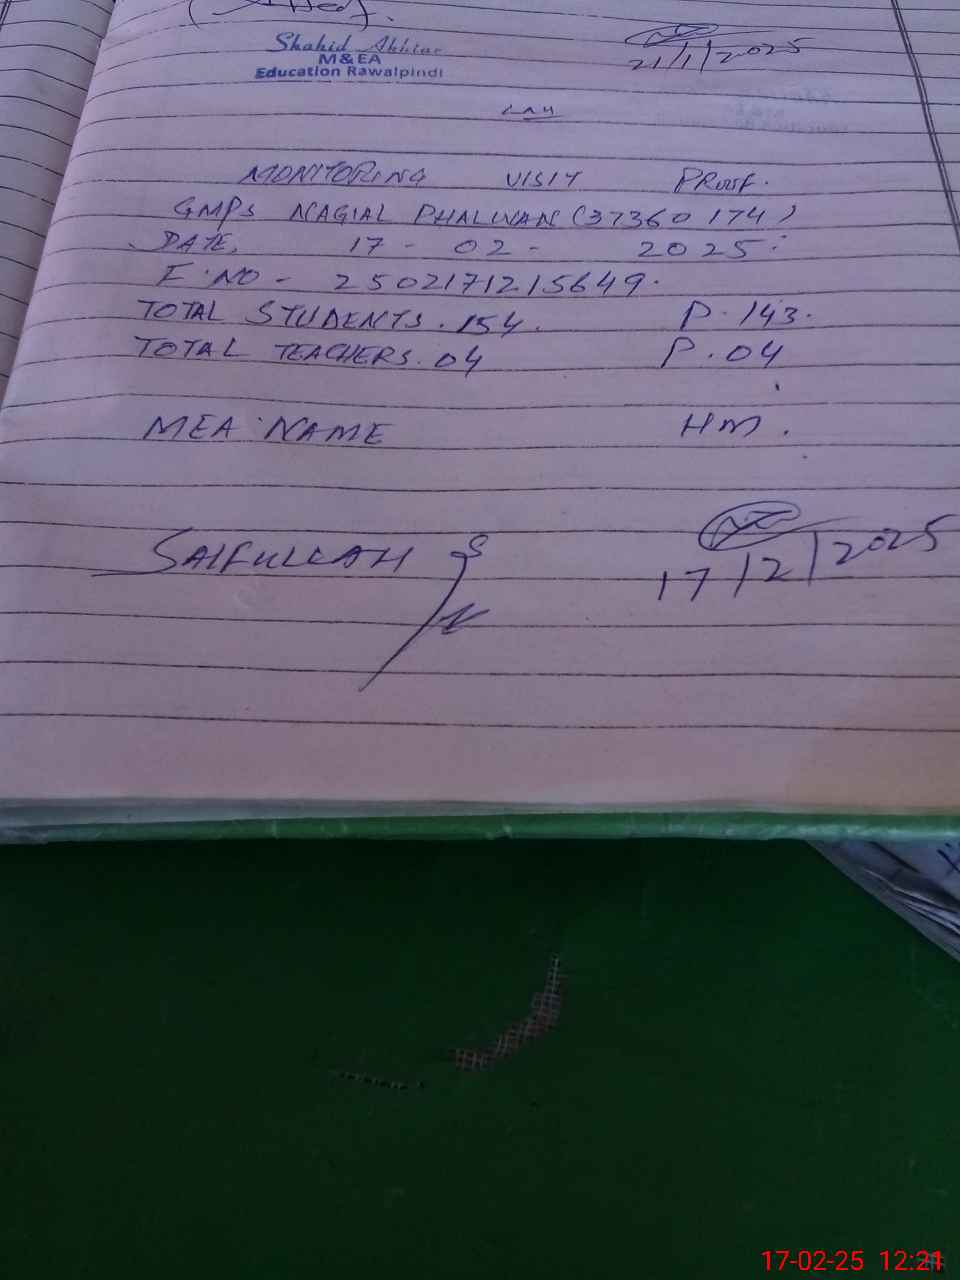 Shahid Akhtar
M&EA
Education Rawalpindi
21/1/2025
MONITORING VISIT PROOF.
GMPS NAGIAL PHALWAN (37360174)
DATE. 17 - 02 - 2025.
F.NO - 2502171215649.
TOTAL STUDENTS. 154. P. 143.
TOTAL TEACHERS. 04 P. 04
MEA NAME HM.
SAIFULLAH
17/2/2025
17-02-25 12:21